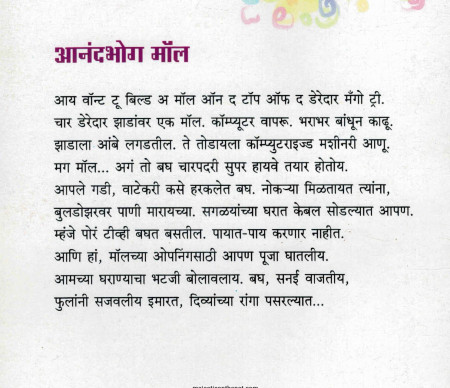 आनंदभोग मॉल
आय वॉन्ट टू बिल्ड अ मॉल ऑन द टॉप ऑफ द डेरेदार मँगो ट्री.
चार डेरेदार झाडांवर एक मॉल. कॉम्प्यूटर वापरू. भराभर बांधून काढू.
झाडाला आंबे लगडतील. ते तोडायला कॉम्प्युटराइज्ड मशीनरी आणू.
मग मॉल... अगं तो बघ चारपदरी सुपर हायवे तयार होतोय.
आपले गडी, वाटेकरी कसे हरकलेत बघ. नोकऱ्या मिळतायत त्यांना,
बुलडोझरवर पाणी मारायच्या. सगळयांच्या घरात केबल सोडल्यात आपण.
म्हंजे पोरं टीव्ही बघत बसतील. पायात-पाय करणार नाहीत.
आणि हां, मॉलच्या ओपनिंगसाठी आपण पूजा घातलीय.
आमच्या घराण्याचा भटजी बोलावलाय. बघ, सनई वाजतीय,
फुलांनी सजवलीय इमारत, दिव्यांच्या रांगा पसरल्यात...